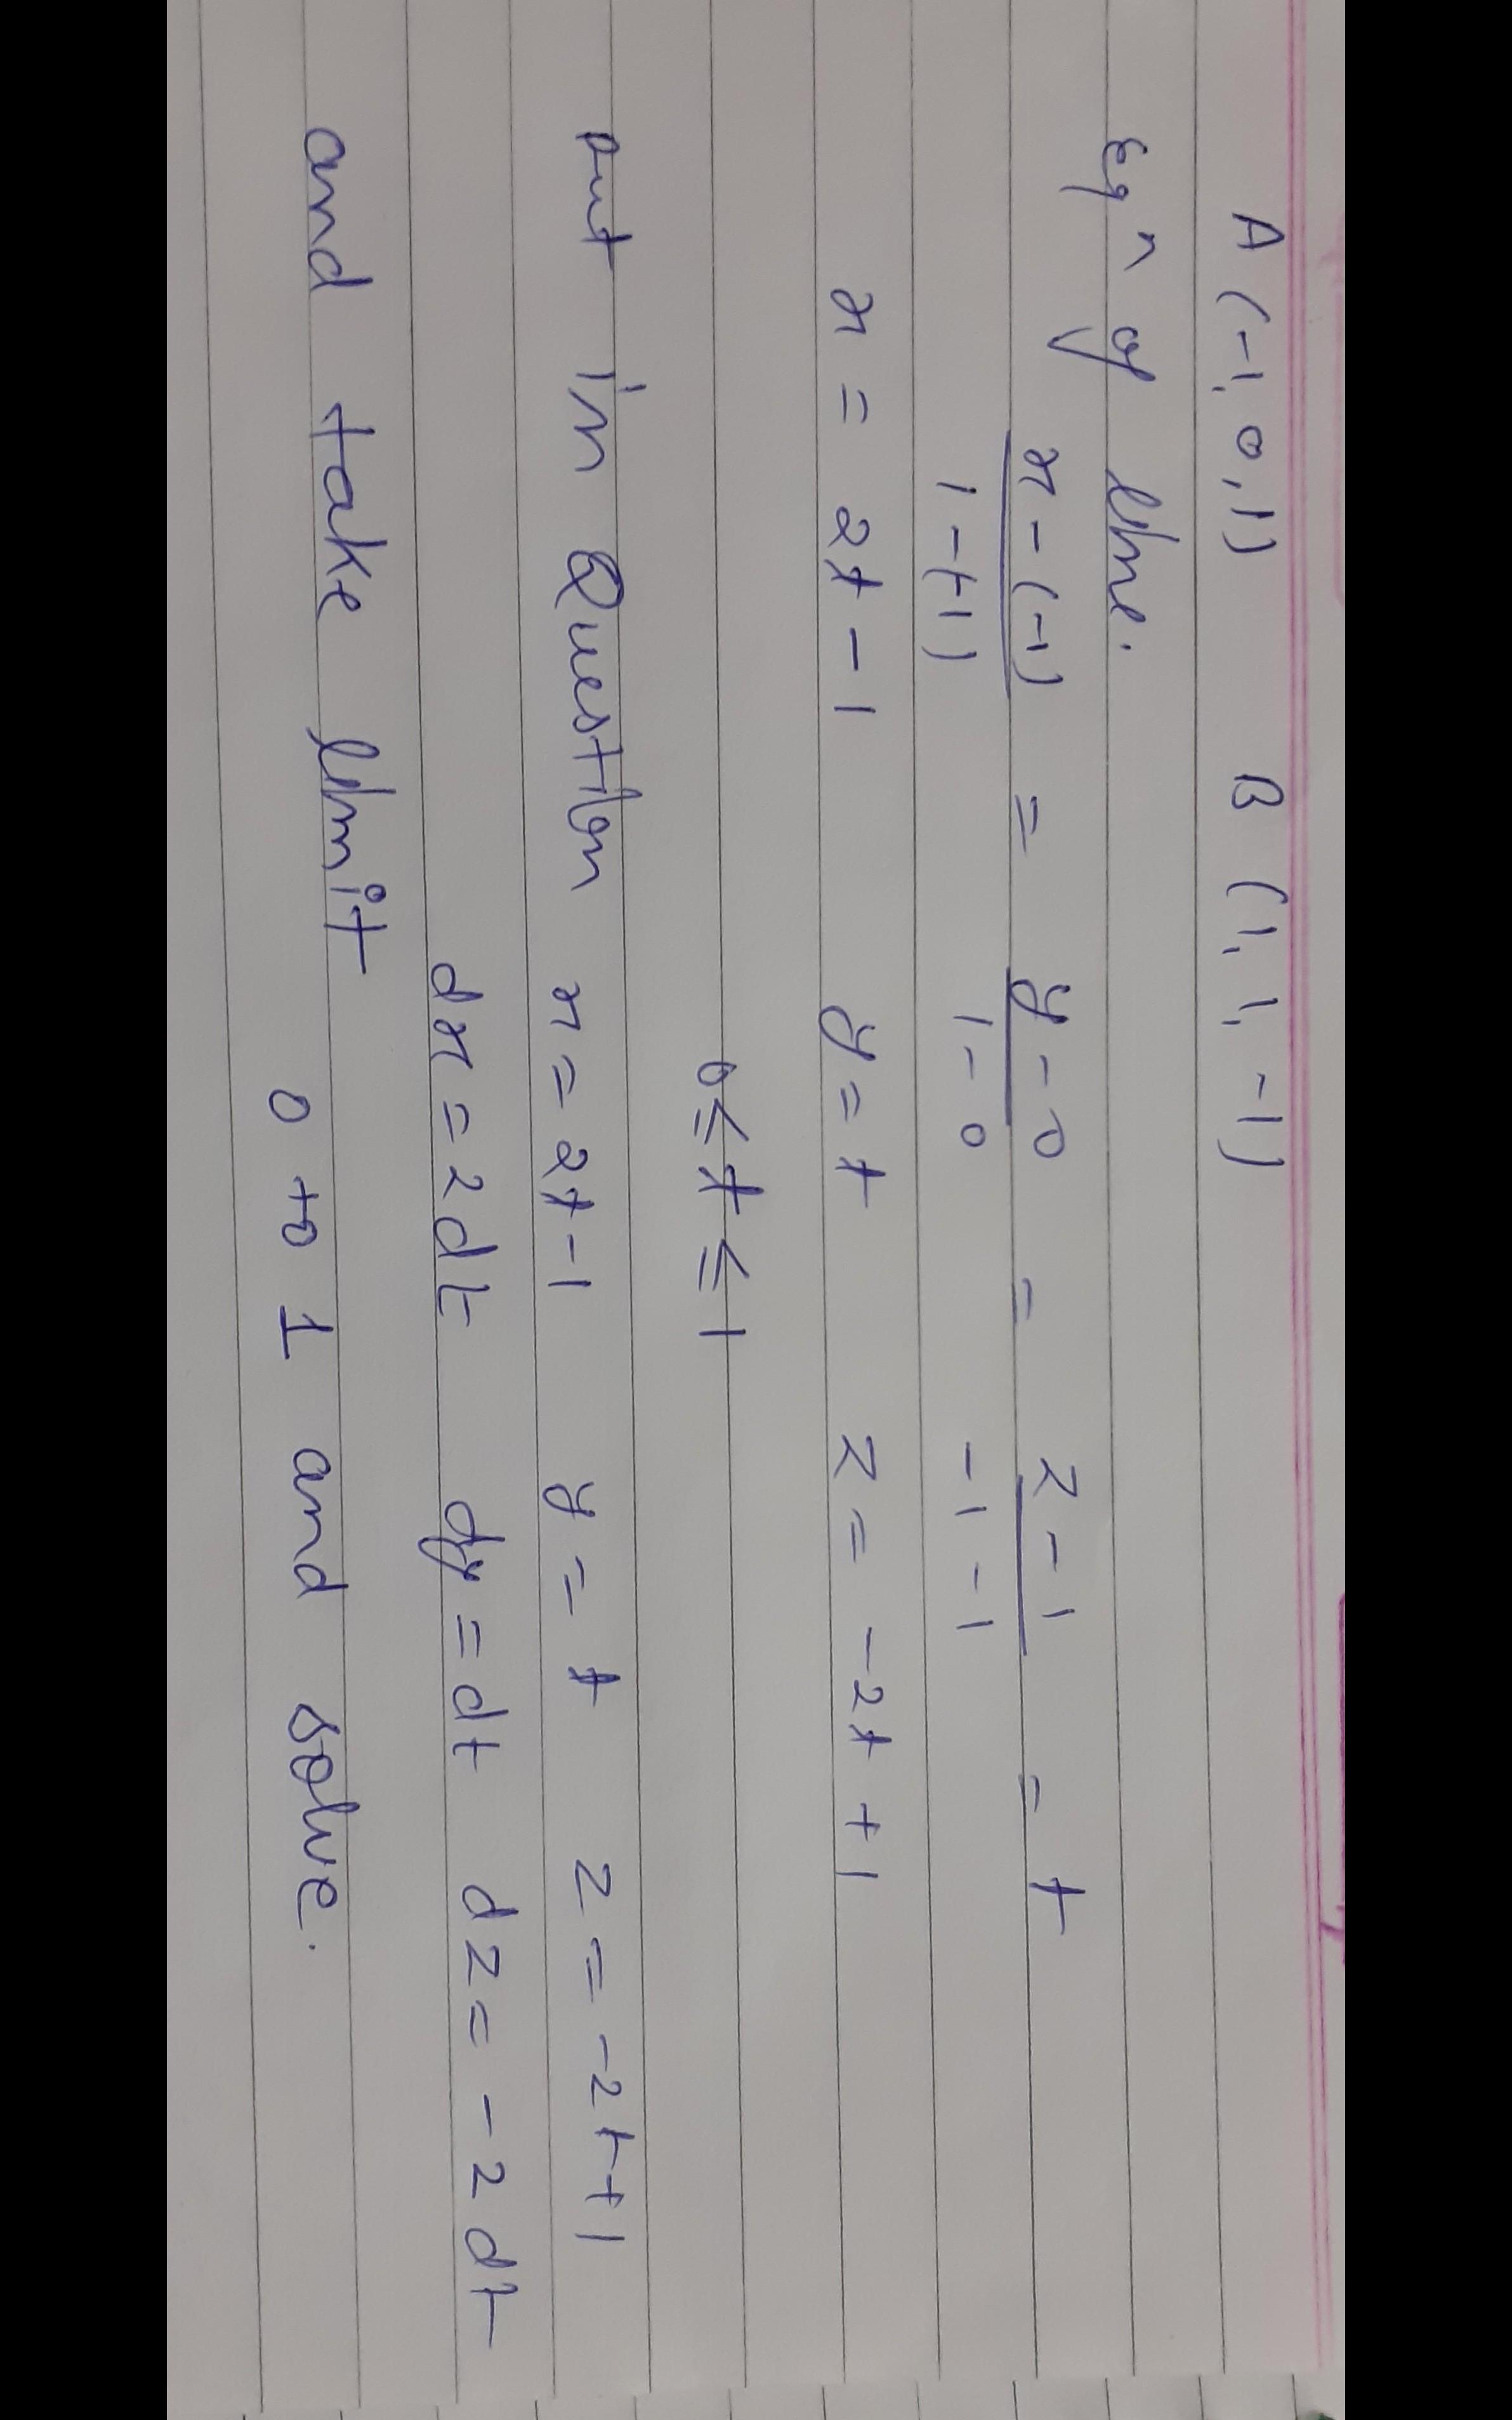 A (-1, 0, 1) B (1, 1, -1)
Eqn of line.
x - (-1) / 1 - (-1) = y - 0 / 1 - 0 = z - 1 / -1 - 1 = t
x = 2t - 1 y = t z = -2t + 1
0 ≤ t ≤ 1
put in Question x = 2t - 1 y = t z = -2t + 1
dx = 2dt dy = dt dz = -2dt
and take limit
0 to 1 and solve.